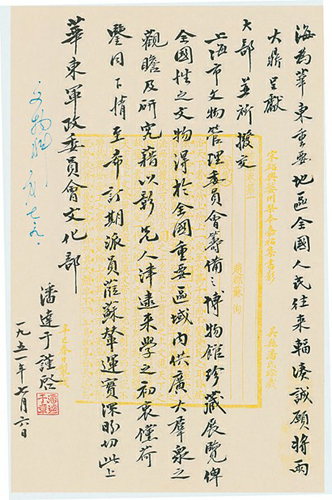 海為華東重要地區全國人民往來輻湊誠願將兩
大鼎呈獻
大部並祈撥交
上海市文物管理委員會籌備之博物館珍藏展覽俾
全國性之文物得於全國重要區域內供廣大羣衆之
觀瞻及研究藉以彰先人津逮來學之初衷儻荷
鑒同下情至希訂期派員蒞蘇輦運實深盼切此上
華東軍政委員會文化部
潘達于謹啓
一九五一年七月六日